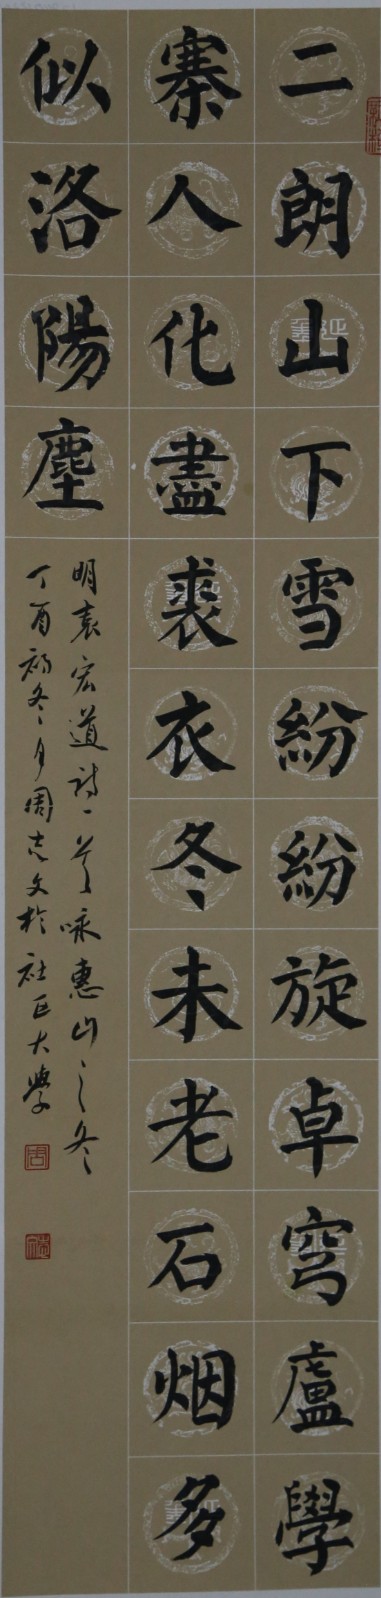 二朗山下雪紛紛旋卓穹廬學
寨人化盡裘衣冬未老石烟多
似洛陽塵
明袁宏道詩一首咏惠山之冬
丁酉初冬月周志文於社區大學